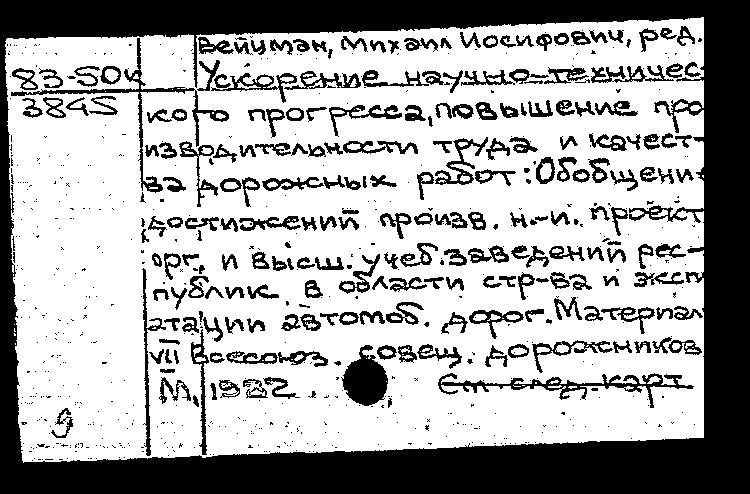 Вейцман, Михаил Иосифович, ред.
83-50к Ускорение научно-техничес-
3845 кого прогресса, повышение про
изводительности труда и качест-
ва дорожных работ: Обобщение
достижений произв. н.-и. проект
орг. и высш. учеб. заведений рес-
публик в области стр-ва и эксп
атации автомоб. дорог. Материал
VII Всесоюз. совещ. дорожников
М., 1982. См. след. карт
9